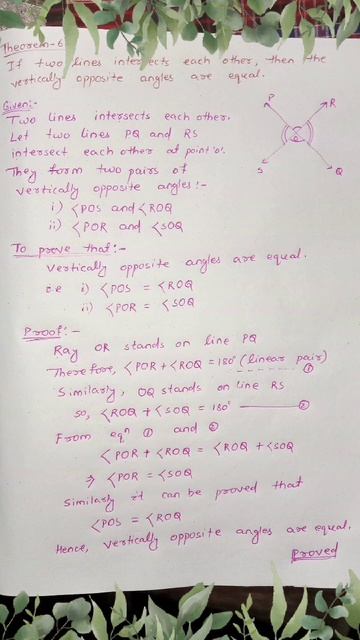 Theorem-6
If two lines intersects each other, then the
vertically opposite angles are equal.
Given:-
Two lines intersects each other.
Let two lines PQ and RS
intersect each other at point 'o'.
They form two pairs of
vertically opposite angles:-
i) <POS and <ROQ
ii) <POR and <SOQ
P
R
O
S
Q
To prove that:-
vertically opposite angles are equal.
i.e i) <POS = <ROQ
ii) <POR = <SOQ
Proof:-
Ray OR stands on line PQ
Therefore, <POR + <ROQ = 180° (linear pair)
①
Similarly, OQ stands on line RS
so, <ROQ + <SOQ = 180° ②
From eqn ① and ②
<POR + <ROQ = <ROQ + <SOQ
⇒ <POR = <SOQ
Similarly it can be proved that
<POS = <ROQ
Hence, vertically opposite angles are equal.
Proved